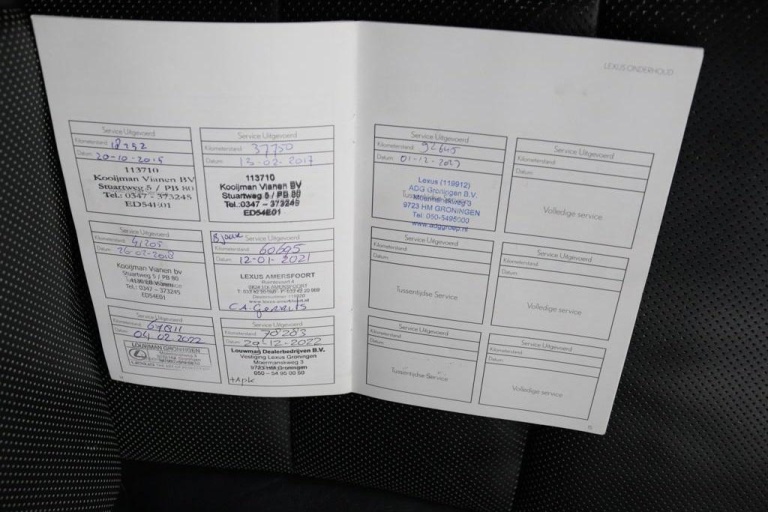 LEXUS ONDERHOUD
Service Uitgevoerd
Kilometerstand
Datum 20-10-2015
113710
Kooijman Vianen BV
Stuartweg 5 / PB 80
Tel.: 0347 - 373245
ED54E01
Service Uitgevoerd
Kilometerstand 37750
Datum 13-02-2017
113710
Kooijman Vianen BV
Stuartweg 5 / PB 80
Tel.: 0347 - 373245
ED54E01
Service Uitgevoerd
Kilometerstand 41205
Datum
Kooijman Vianen bv
Stuartweg 5 / PB 80
Tel. 0347 - 373245
ED54E01
Service Uitgevoerd
Kilometerstand 60695
Datum 12-01-2021
LEXUS AMERSFOORT
Service Uitgevoerd
Kilometerstand
Datum 04-02-2022
LOUWMAN GRONINGEN
Service Uitgevoerd
Kilometerstand 70203
Datum 29-12-2022
Louwman Dealerbedrijven B.V.
Vestiging Lexus Groningen
Moermanskweg 3
9723 HM Groningen
050 - 54 95 00 50
+Apk
Service Uitgevoerd
Kilometerstand 92645
Datum 01-12-2023
Lexus (119912)
ADG Groningen B.V.
9723 HM GRONINGEN
Tel: 050-5495000
www.adggroep.nl
Service Uitgevoerd
Kilometerstand
Datum
Volledige service
Service Uitgevoerd
Kilometerstand
Datum
Tussentijdse Service
Service Uitgevoerd
Kilometerstand
Datum
Volledige service
Service Uitgevoerd
Kilometerstand
Datum
Tussentijdse Service
Service Uitgevoerd
Kilometerstand
Datum
Volledige service